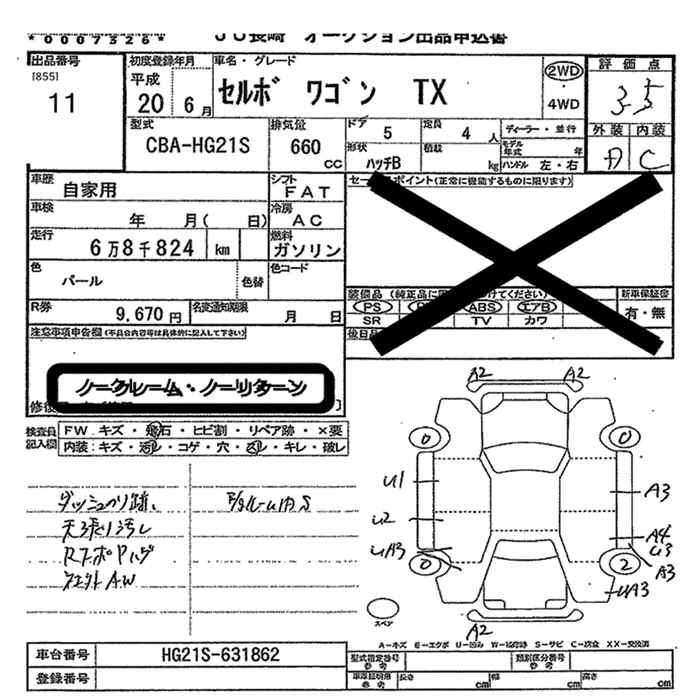 *0007326*
JU長崎 オークション出品申込書
出品番号
[855]
11
初度登録年月
平成
20 6月
車名・グレード
セルボ ワゴン TX
2WD
4WD
評価点
3.5
外装 内装
A C
型式
CBA-HG21S
排気量
660 CC
ドア 5
定員 4 人
形状 ハッチB
積載 kg
ディーラー・並行
モデル年式 年
ハンドル 左・右
車歴 自家用
シフト FAT
車検 年 月( 日)
冷房 AC
走行 6万8千824 km
燃料 ガソリン
色 パール
色替
色コード
R券 9,670円
名変通知期限 月 日
注意事項申告欄(不具合内容等は具体的に記入して下さい)
ノークレーム・ノーリターン
セールスポイント(正常に機能するものに限ります)
装備品
PS ABS エアB
SR TV カワ
新車保証書
有・無
後日品
検査員記入欄
FW. キズ・飛石・ヒビ割・リペア跡・×要
内装:キズ・汚れ・コゲ・穴・スレ・キレ・破レ
ダッシュのり跡、
天張り汚レ
AW
A2 A2
0 0
U1
A3
U2
A4
UA3
U3
A3
0 2
UA3
A2
スペア
A-キズ E-エクボ U-凹み W-補修跡 S-サビ C-腐食 XX-交換済
車台番号 HG21S-631862
登録番号
型式指定番号 参考
類別区分番号 参考
車庫証明用 参考
長さ cm
幅 cm
高さ cm